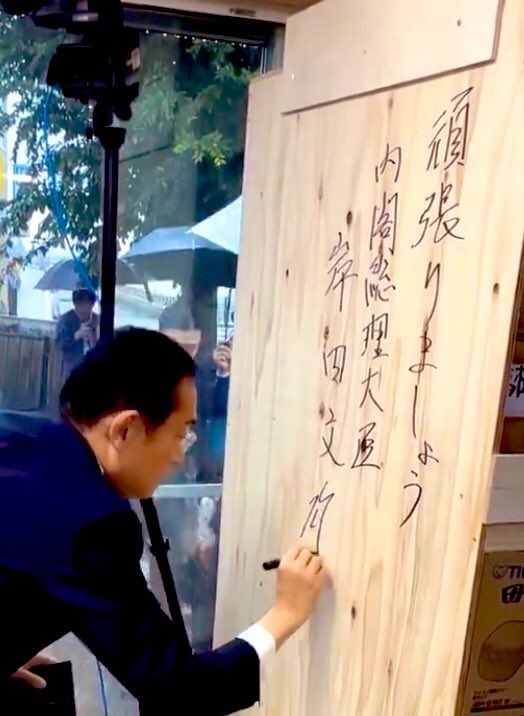 頑張りましょう
内閣総理大臣
岸田文